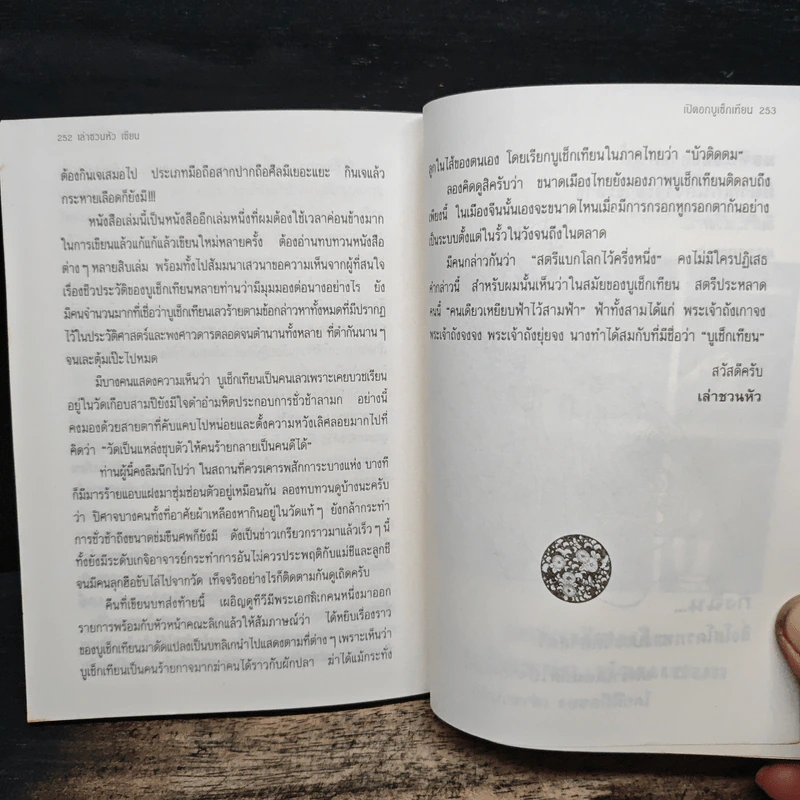 252 เล่าชวนหัว เขียน
ต้องกินเจเสมอไป ประเภทมือถือสากปากถือศีลมีเยอะแยะ กินเจแล้ว
กระหายเลือดก็ยังมี!!!
หนังสือเล่มนี้เป็นหนังสืออีกเล่มหนึ่งที่ผมต้องใช้เวลาค่อนข้างมาก
ในการเขียนแล้วแก้แก้แล้วเขียนใหม่หลายครั้ง ต้องอ่านทบทวนหนังสือ
ต่างๆ หลายสิบเล่ม พร้อมทั้งไปสัมมนาเสวนาขอความเห็นจากผู้ที่สนใจ
เรื่องชีวประวัติของบูเช็กเทียนหลายท่านว่ามีมุมมองต่อนางอย่างไร ยัง
มีคนจำนวนมากที่เชื่อว่าบูเช็กเทียนเลวร้ายตามข้อกล่าวหาทั้งหมดที่มีปรากฏ
ไว้ในประวัติศาสตร์และพงศาวดารตลอดจนตำนานทั้งหลาย ที่ตำกันนานๆ
จนเละตุ้มเป๊ะไปหมด
มีบางคนแสดงความเห็นว่า บูเช็กเทียนเป็นคนเลวเพราะเคยบวชเรียน
อยู่ในวัดเกือบสามปียังมีใจดำอำมหิตประกอบการชั่วช้าลามก อย่างนี้
คงมองด้วยสายตาที่คับแคบไปหน่อยและตั้งความหวังเลิศลอยมากไปที่
คิดว่า "วัดเป็นแหล่งชุบตัวให้คนร้ายกลายเป็นคนดีได้"
ท่านผู้นี้คงลืมนึกไปว่า ในสถานที่ควรเคารพสักการะบางแห่ง บางที
ก็มีมารร้ายแอบแฝงมาซุ่มซ่อนตัวอยู่เหมือนกัน ลองทบทวนดูบ้างนะครับ
ว่า ปิศาจบางคนทั้งที่อาศัยผ้าเหลืองหากินอยู่ในวัดแท้ๆ ยังกล้ากระทำ
การชั่วช้าถึงขนาดข่มขืนศพก็ยังมี ดังเป็นข่าวเกรียวกราวมาแล้วเร็วๆ นี้
ทั้งยังมีระดับเกจิอาจารย์กระทำการอันไม่ควรประพฤติกับแม่ชีและลูกชี
จนมีคนลุกฮือขับไล่ไปจากวัด เท็จจริงอย่างไรก็ติดตามกันดูเถิดครับ
คืนที่เขียนบทส่งท้ายนี้ เผอิญดูทีวีมีพระเอกลิเกคนหนึ่งมาออก
รายการพร้อมกับหัวหน้าคณะลิเกแล้วให้สัมภาษณ์ว่า ได้หยิบเรื่องราว
ของบูเช็กเทียนมาดัดแปลงเป็นบทลิเกนำไปแสดงตามที่ต่างๆ เพราะเห็นว่า
บูเช็กเทียนเป็นคนร้ายกาจมากฆ่าคนได้ราวกับผักปลา ฆ่าได้แม้กระทั่ง
เปิดอกบูเช็กเทียน 253
ลูกในไส้ของตนเอง โดยเรียกบูเช็กเทียนในภาคไทยว่า "บัวติดตม"
ลองคิดดูสิครับว่า ขนาดเมืองไทยยังมองภาพบูเช็กเทียนติดลบถึง
เพียงนี้ ในเมืองจีนนั้นเองจะขนาดไหนเมื่อมีการกรอกหูกรอกตากันอย่าง
เป็นระบบตั้งแต่ในรั้วในวังจนถึงในตลาด
มีคนกล่าวกันว่า "สตรีแบกโลกไว้ครึ่งหนึ่ง" คงไม่มีใครปฏิเสธ
คำกล่าวนี้ สำหรับผมนั้นเห็นว่าในสมัยของบูเช็กเทียน สตรีประหลาด
คนนี้ "คนเดียวเหยียบฟ้าไว้สามฟ้า" ฟ้าทั้งสามได้แก่ พระเจ้าถังเกาจง
พระเจ้าถังจงจง พระเจ้าถังยุ่ยจง นางทำได้สมกับที่มีชื่อว่า "บูเช็กเทียน"
สวัสดีครับ
เล่าชวนหัว